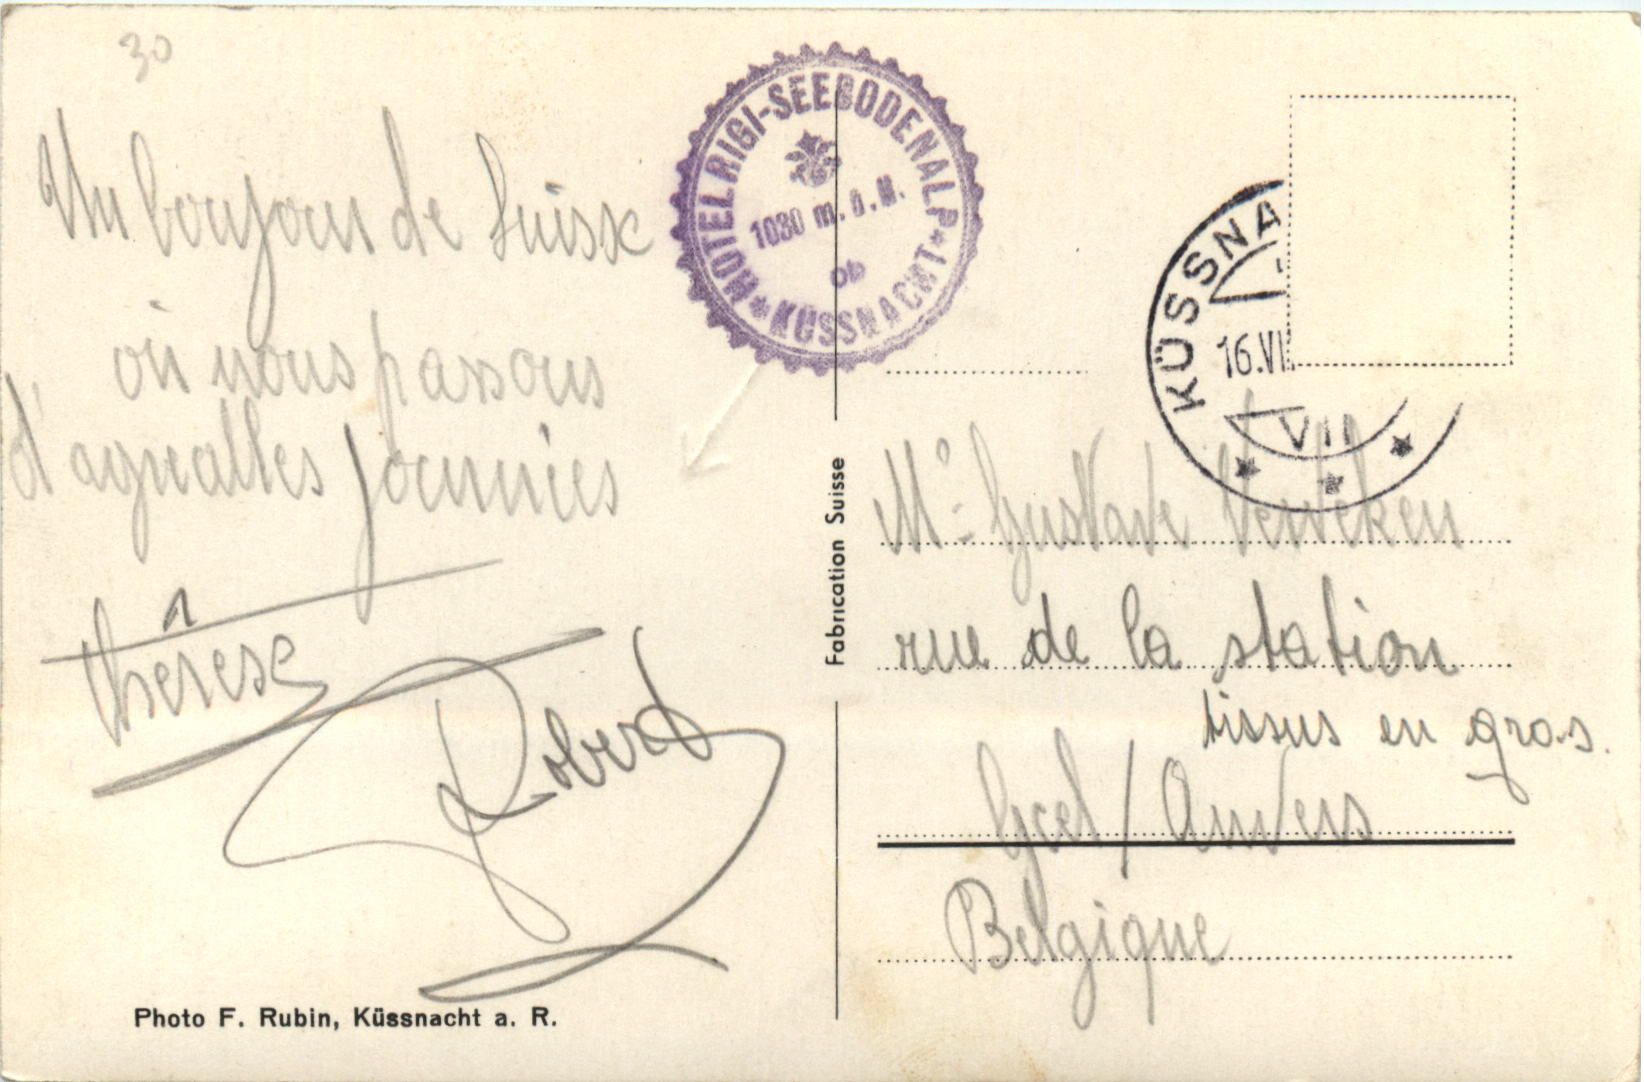 30
Un bonjour de Suisse
où nous passons
d'agréables journées
thérèse
Robert
Photo F. Rubin, Küssnacht a. R.
HOTEL RIGI-SEEBODENALP
1030 m. ü. M.
ob
KÜSSNACHT
Fabrication Suisse
KÜSSNA
16.VI
VII
Mr Gustave
rue de la station
tissus en gros.
Geel / Anvers
Belgique